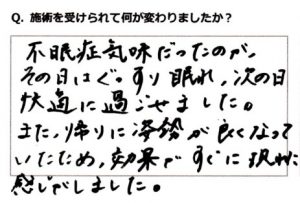 Q. 施術を受けられて何が変わりましたか？
不眠症気味だったのが、
その日はぐっすり眠れ、次の日
快適に過ごせました。
また、帰りに姿勢が良くなって
いたため、効果がすぐに現れた
感じがしました。